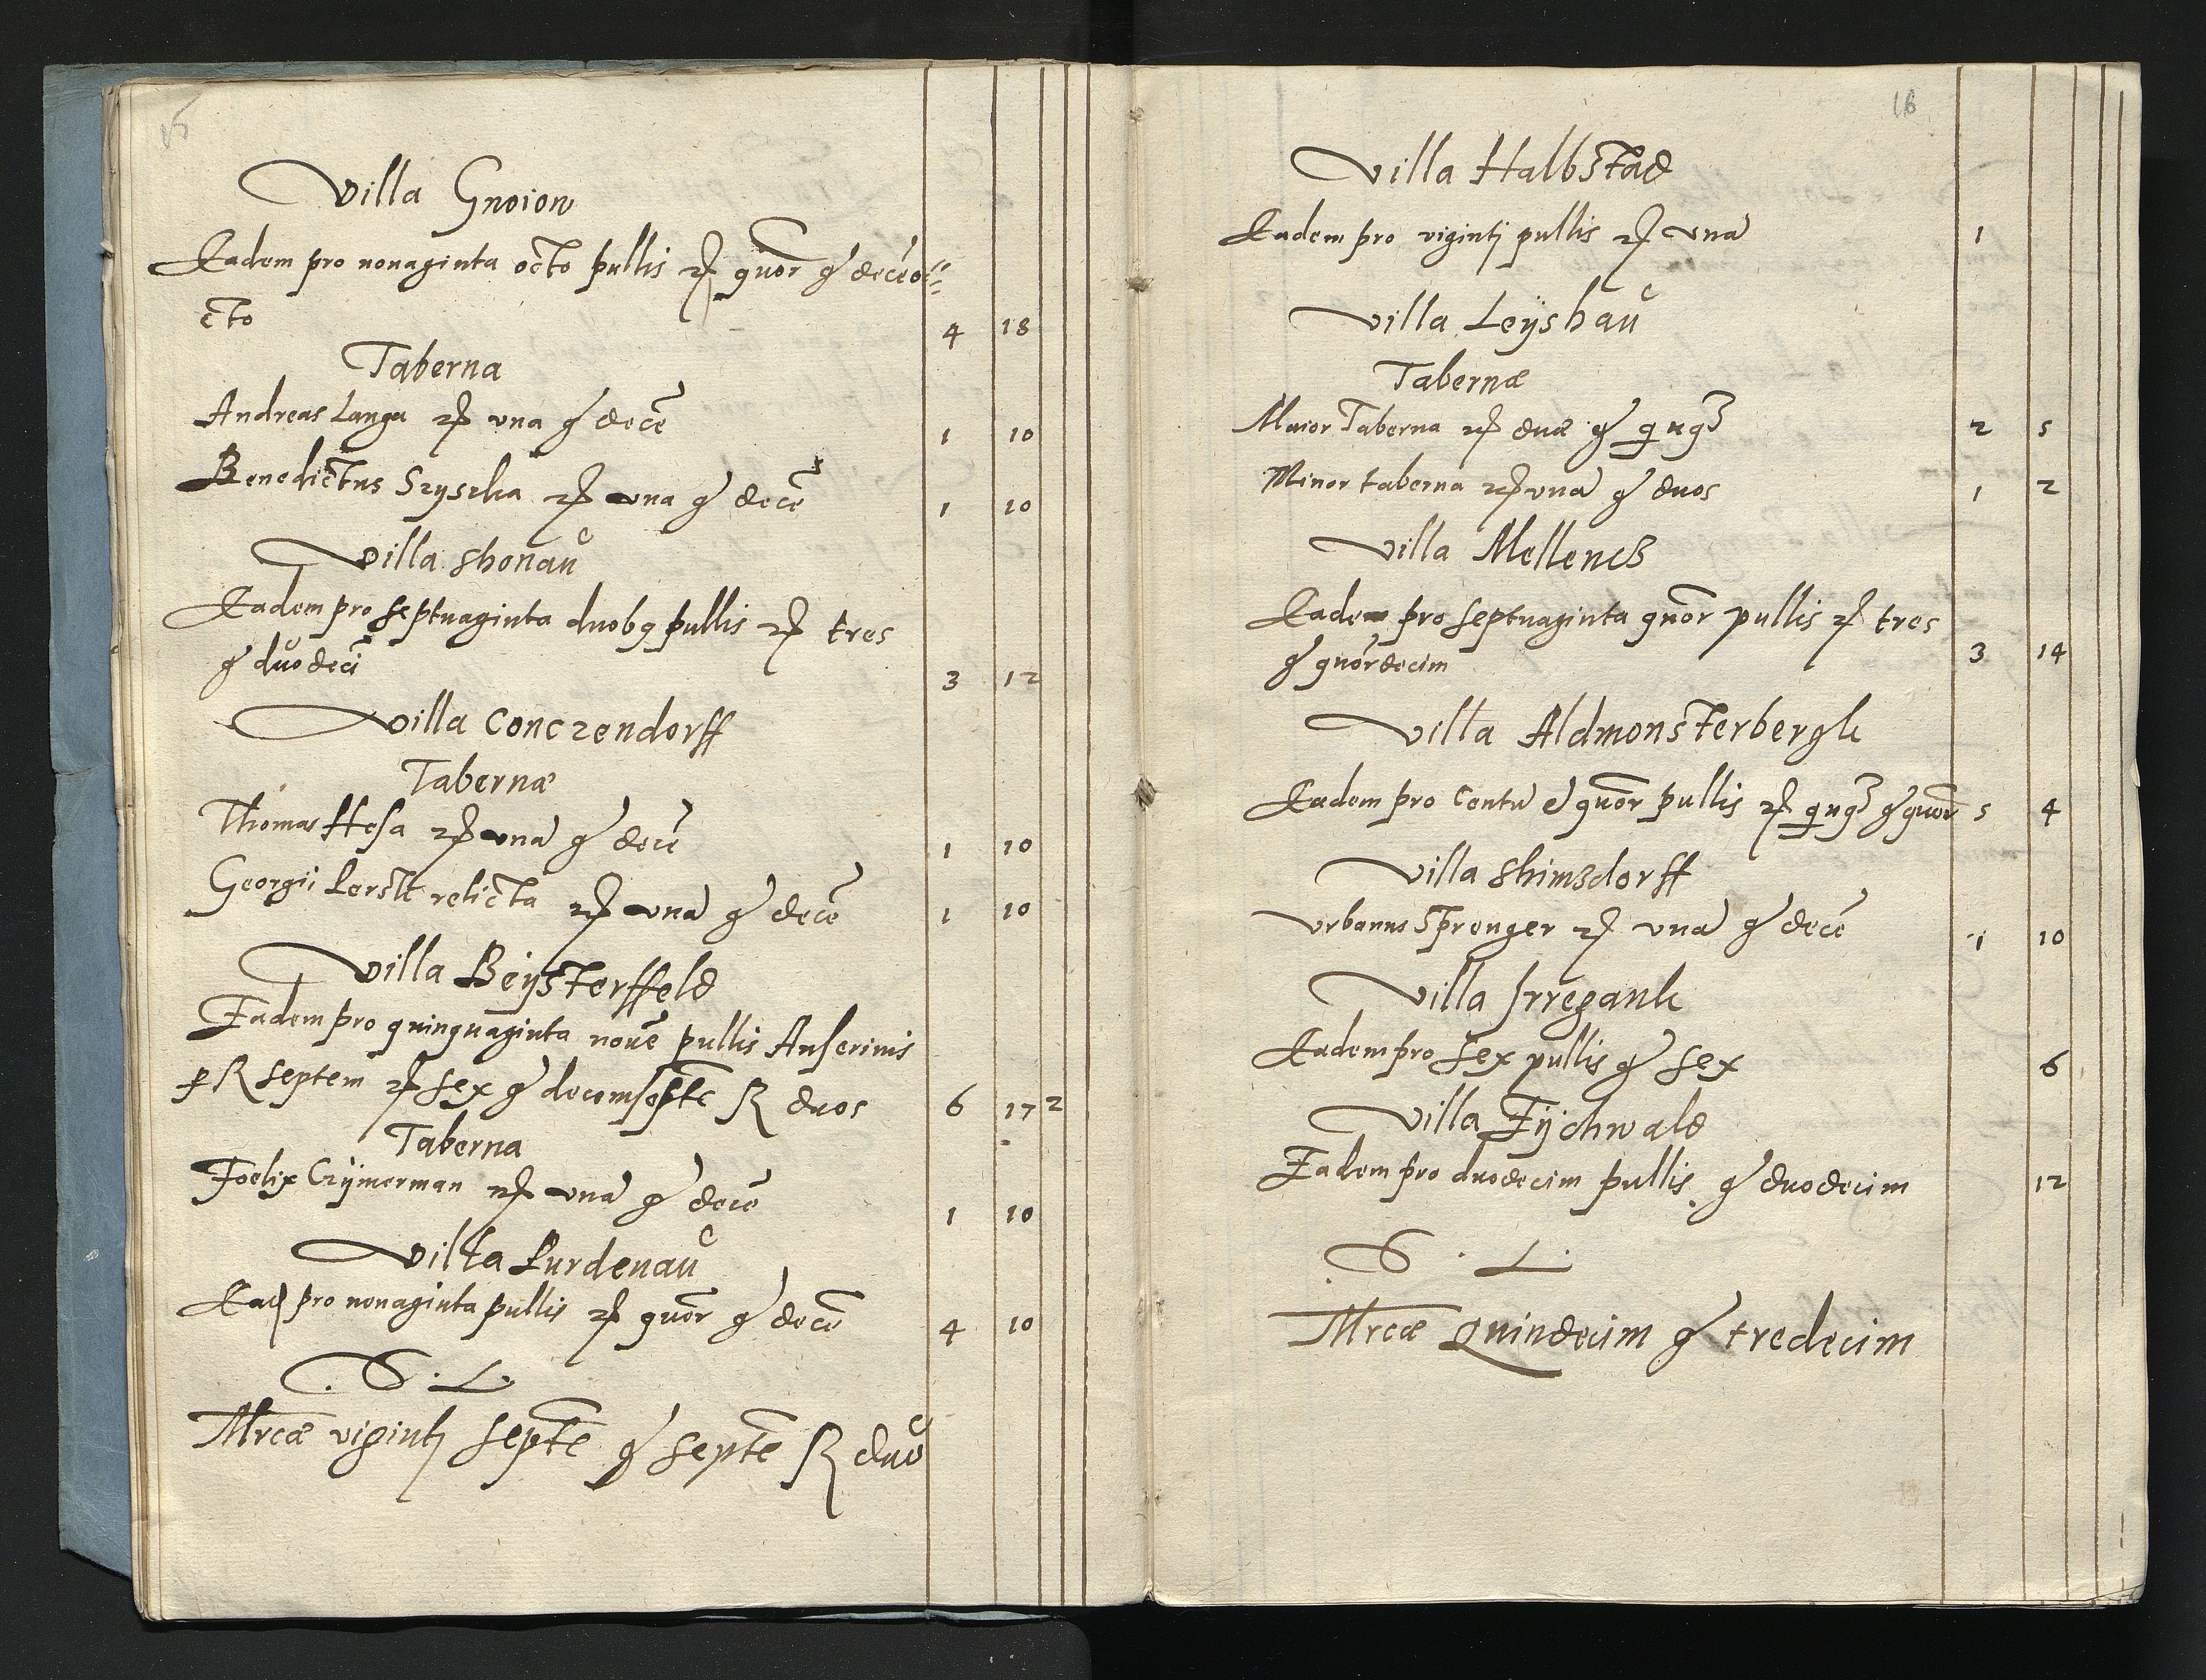 15
Villa Gnoiow
Eadem pro nonaginta octo pullis mr quor g deceo=
cto 4 18
Taberna
Andreas Langa mr vna g decē 1 10
Benedictus Szyszka mr vna g decē 1 10
Villa Shonau
Eadem pro septuaginta duobq pullis mr tres
g duodeci 3 12
Villa Conczendorff
Tabernæ
Thomas Hesa mr vna g decē 1 10
Georgii relicta mr vna g decē 1 10
Villa Beÿsterffeld
Eadem pro quinquaginta nouē pullis Anserinis
p ß septem mr sex g decemseptē ß duos 6 17 2
Taberna
Foelix Czÿmerman mr vna g decē 1 10
Villa Lurdenau
Ead pro nonaginta pullis mr quor g decē 4 10
S. L.
Mrcæ vigintj septē g septē ß duo
16
Villa Halbstad
Eadem pro vigintj pullis mr vna 1
Villa Leÿshau
Tabernæ
Maior Taberna mr duæ g qnq3 2 5
Minor taberna mr vna g duos 1 2
Villa Mellencz
Eadem pro septuaginta quor pullis mr tres
g quordecim 3 14
Villa Aldmonsterbergk
Eadem pro Centu et quor pullis mr qnq3 g quor 5 4
Villa Shimsdorff
Vrbanus Sprenger mr vna g decē 1 10
Villa Irregank
Eadem pro sex pullis g sex 6
Villa Fÿchwald
Eadem pro duodecim pullis g duodecim 12
S. L.
Mrcæ quindecim g tredecim